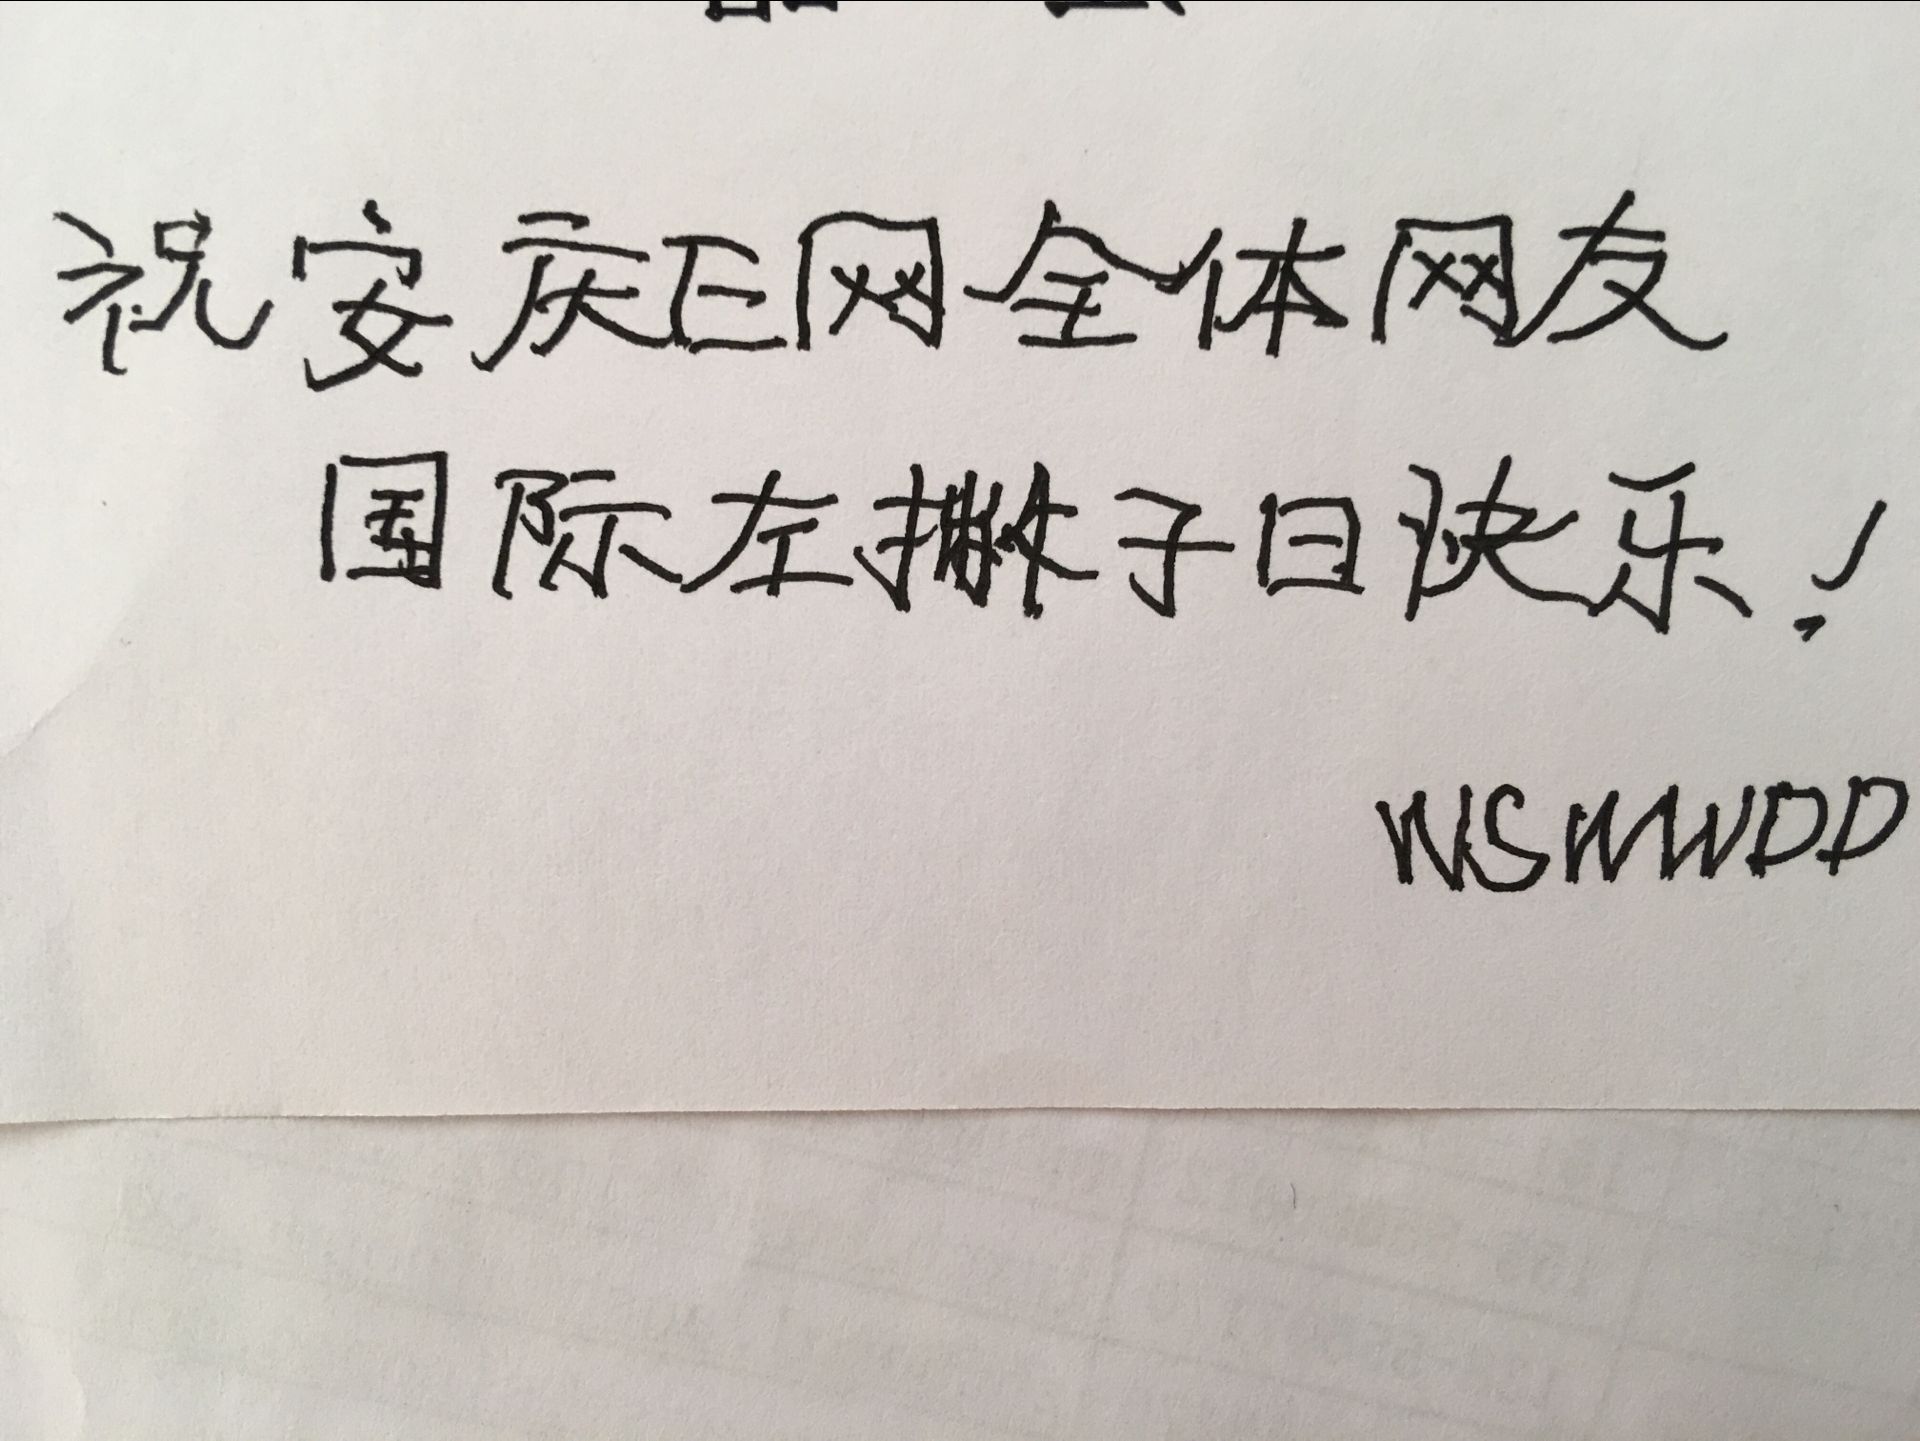 祝安庆E网全体网友
国际左撇子日快乐！
WSMWDD